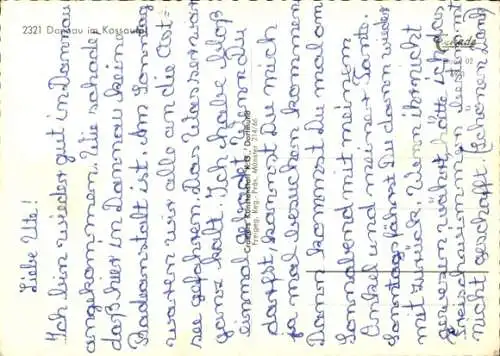 2321 Dannau im Kossautal
Cramers Kunstanstalt K.G., Dortmund
Freigeg. Reg.-Präs. Münster 214/66
Liebe Ute!
Ich bin wieder gut in Dannau
angekommen. Wie schade
daß hier in Dannau keine
Badeanstalt ist. Am Sonntag
waren wir alle an die Ost-
see gefahren. Das Wasser war
ganz kalt. Ich habe bloß
einmal gebadet. Wenn Du
darfst, kannst Du mich
ja mal besuchen kommen.
Dann kommst Du mal am
Sonnabend mit meinem
Onkel und meiner Tante.
Sonntags fährst Du dann wieder
mit zurück. Wenn ihr nicht
gewesen wärt, hätte ich das
Freischwimmen bestimmt
nicht geschafft. Schönen